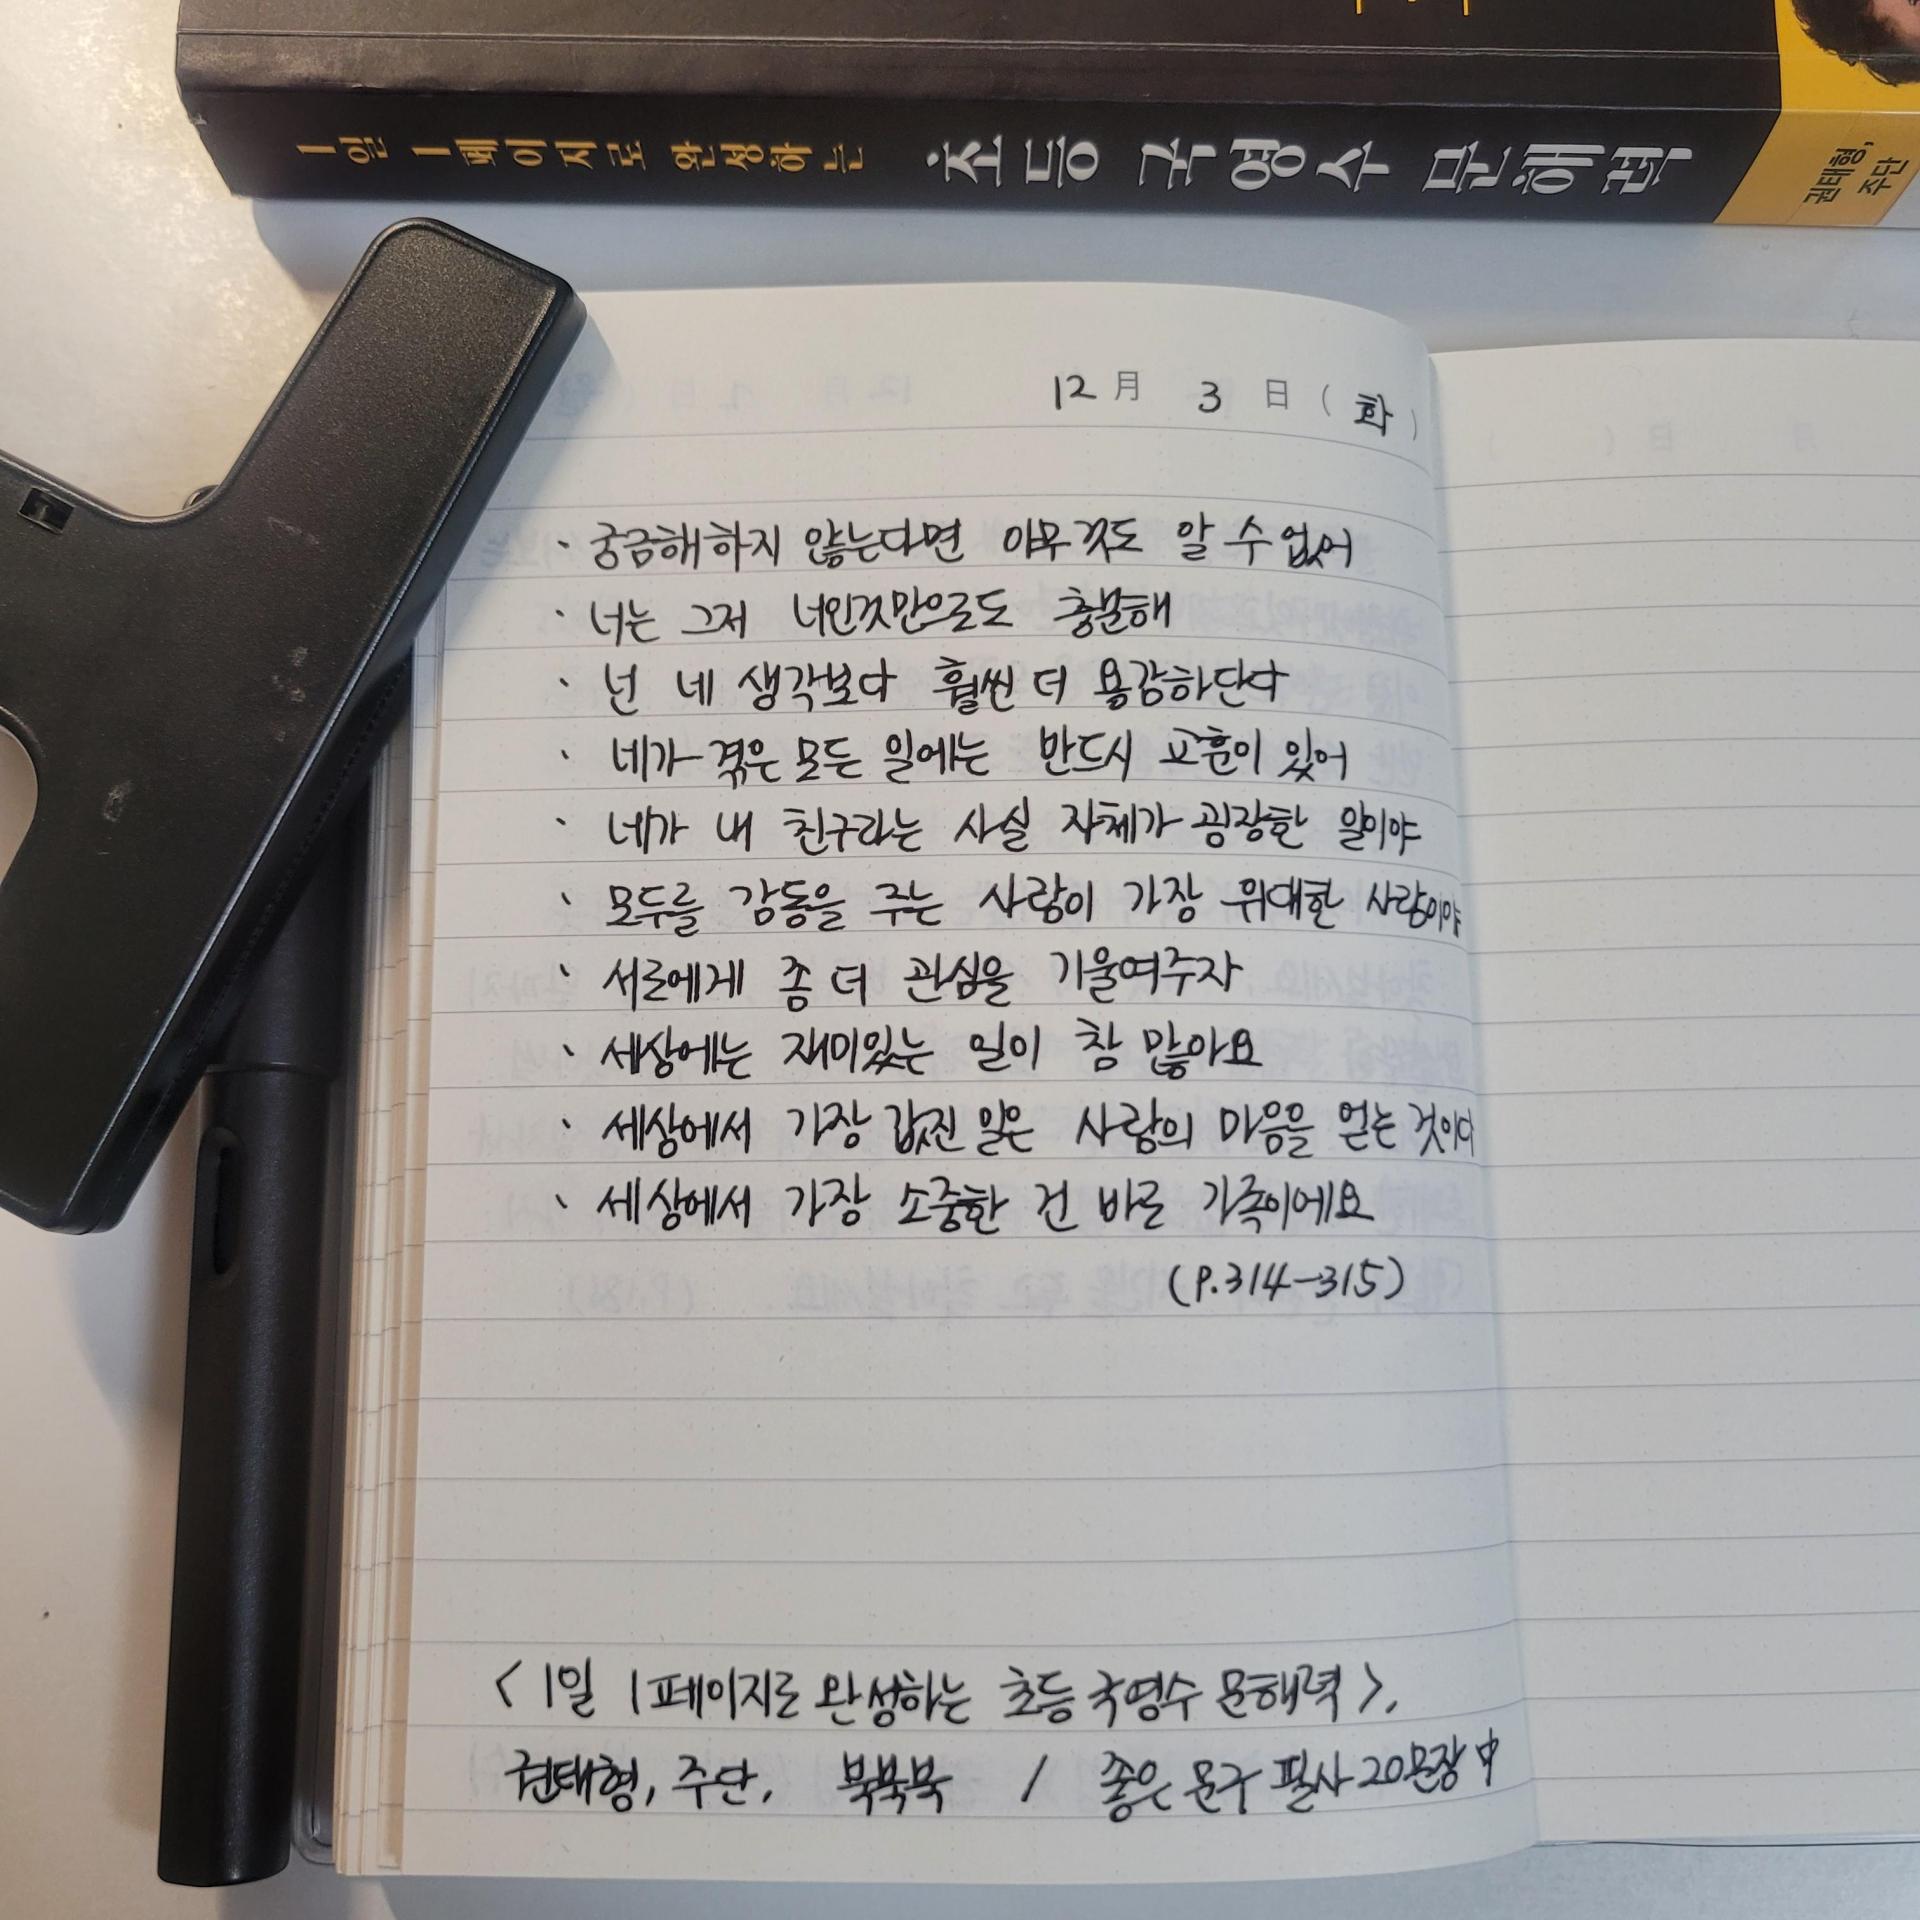 1일 1페이지로 완성하는 초등 국영수 문해력
권태형,
주단
12月 3日(화)
· 궁금해하지 않는다면 아무것도 알 수 없어
· 너는 그저 너인것만으로도 충분해
· 넌 네 생각보다 훨씬 더 용감하단다
· 네가 겪은 모든 일에는 반드시 교훈이 있어
· 네가 내 친구라는 사실 자체가 굉장한 일이야
· 모두를 감동을 주는 사랑이 가장 위대한 사랑이야
· 서로에게 좀 더 관심을 기울여주자
· 세상에는 재미있는 일이 참 많아요
· 세상에서 가장 값진 일은 사람의 마음을 얻는 것이다
· 세상에서 가장 소중한 건 바로 가족이에요
(P.314-315)
<1일 1페이지로 완성하는 초등 국영수 문해력>,
권태형, 주단, 북북북 / 좋은 문구 필사 20문장 中